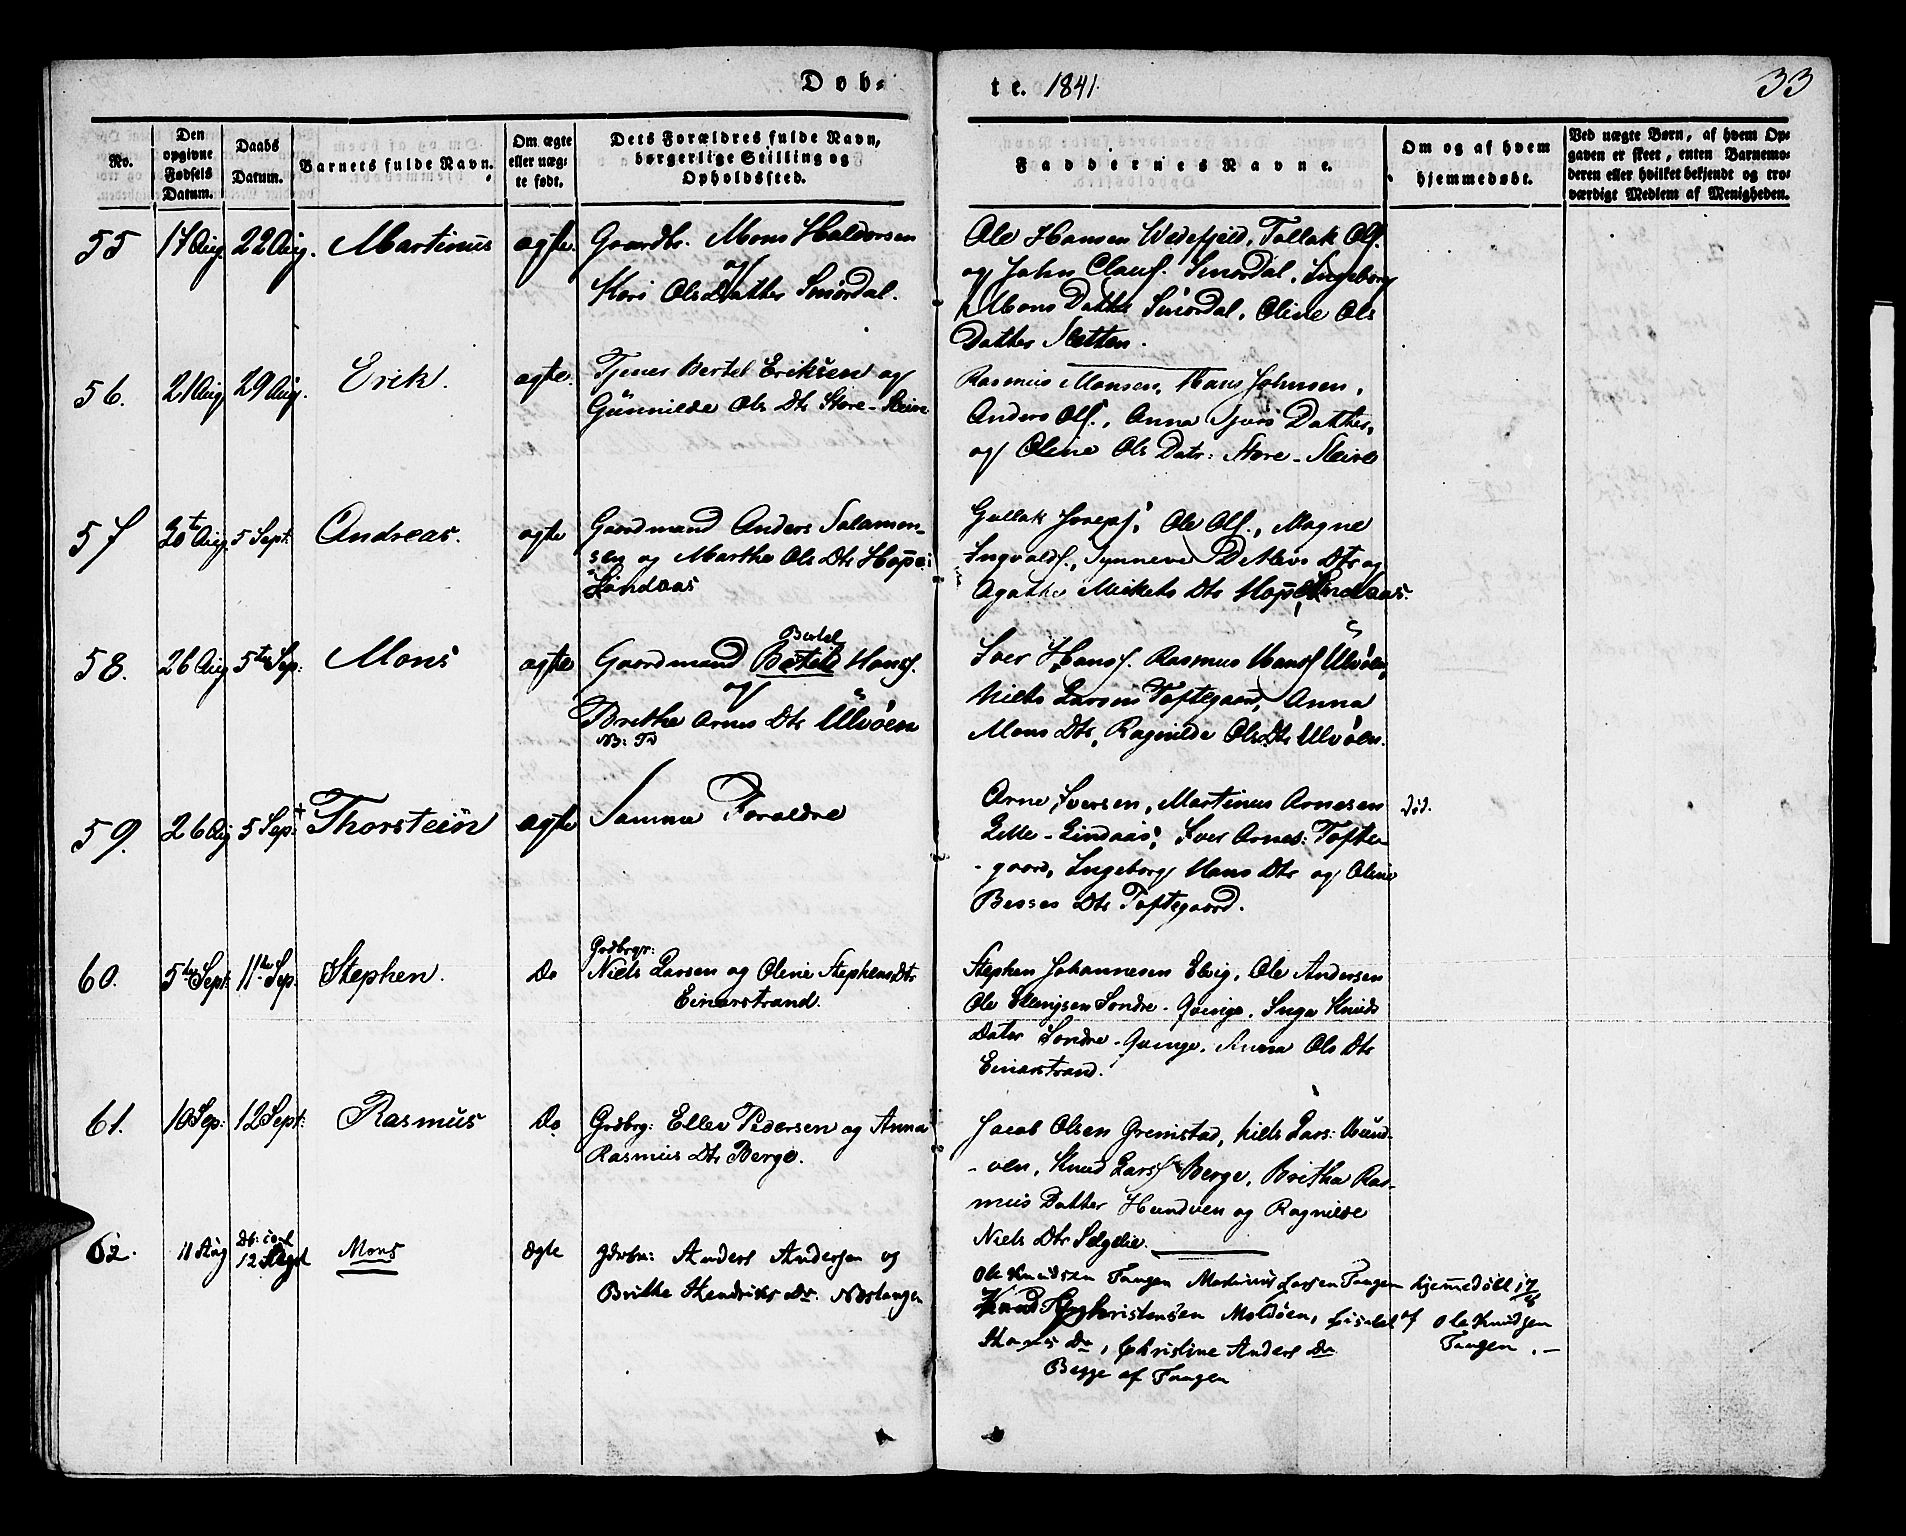 Døb-
te. 1841.
33
No.
Den opgivne Fødsels Datum.
Daabs Datum.
Barnets fulde Navn.
Om ægte eller uægte født.
Dets Forældres fulde Navn, borgerlige Stilling og Opholdssted.
Faddernes Navne.
Om og af hvem hjemmedøbt.
Ved uægte Børn, af hvem Opgaven er skeet, enten Barnemoderen eller hvilket bekjendt og troværdigt Medlem af Menigheden.
55 17 Aug. 22 Aug. Martinus ægte. Gaardbr. Mons Haldorsen
og
Kari Ols Datter Smørdal.
Ole Hansen Wedefjeld, Tollak Ols.
og John Clausf. Smørdal, Ingeborg
Mons Datter Smørdal, Oline Ols
Datter Sletten.
56. 21 Aug 29 Aug. Erik. ægte. Tjener Bertel Eriksen og
Gunnilde Ols Dtr Store-
Rasmus Monsen, Hans Johnsen,
Anders Olsf., Anna Sjurs Datter,
og Oline Ols Datr: Store-
57 30te Aug. 5 Sept: Andreas. ægte Gaardmand Anders Salamon-
sen og Marthe Ols Dtr Hope i
Lindaas
Gullak Josepf., Ole Olsf., Magne
Ingvaldf., Synneve Detlevs Dtr og
Agathe Mikkels Dtr Hope, Lindaas.
58. 26 Aug 5te Sep: Mons ægte Gaardmand Bertel Hansf.
Bertel
og
Brithe Arnes Dtr Ulvøen
NB: To
Iver Hansf. Rasmus Hansf Ulvøen,
Niels Larsen Toftegaard, Anna
Mons Dtr, Ragnilde Ols Dtr Ulvøen.
59. 26 Aug 5 Sept Thorstein ægte Samme Forældre
Arne Iversen, Martinus Arnesen
Lille-Lindaas, Iver Arnes: Tofte-
-gaard, Ingeborg Hans Dtr og Oline
Besses Dtr Toftegaard.
død.
60. 5te Sept: 11te Sep. Stephen. Do Grdbrgr:
Niels Larsen og Oline Stephens Dtr
Einerstrand.
Stephen Johannesen Elvig, Ole Andersen
Ole Ellingsen Søndre-Qvinge, Inga Knuds
Dater Søndre-Qvinge, Anna Ols Dtr
Einerstrand.
61. 10 Sep: 12 Sept: Rasmus Do Grdbrg: Ellev Pedersen og Anna
Rasmus Dtr Berge.
Jacob Olsen Gremstad, Niels Lars: Hund-
-ven, Knud Larsf Berge, Britha Ras-
mus Datter Hundven og Ragnilde
Niels Dtr
62. 11 Aug 12 Sept Mons ægte Gdrbr: Anders Andersen og
Brithe Hendriks Dr.
Ole Knudsen Tangen Martinus Larsen Tangen
Christensen Moldøen,
Hans Dr, Christine Anders Dr
Begge af Tangen
hjemmedøbt 17/8
af Ole Knudsen
Tangen.